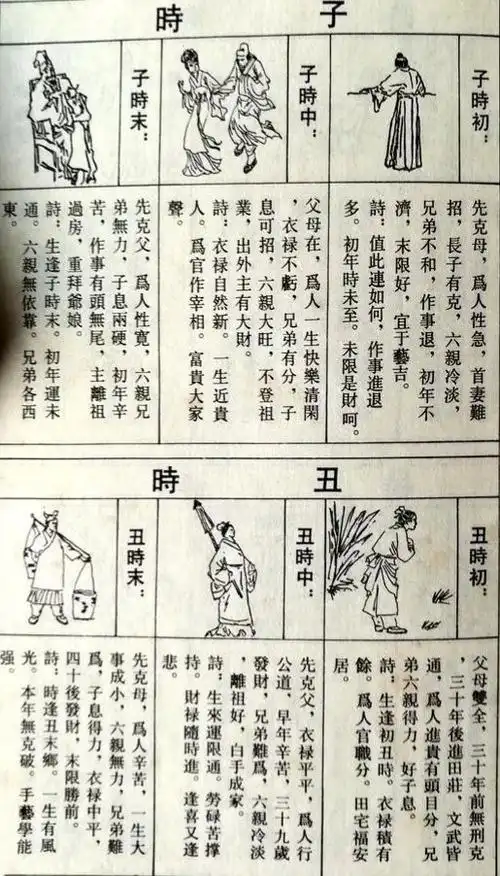 子時
子時初：
先克母，爲人性急，首妻難
招，長子有克，六親冷淡，
兄弟不和，作事退，初年不
濟，末限好，宜于藝吉。
詩：值此連如何，作事進退
多。初年時未至。末限是財呵。
子時中：
父母在，爲人一生快樂清閑
，衣禄不虧，兄弟有分，子
息可招，六親大旺，不登祖
業，出外主有大財。
詩：衣禄自然新。一生近貴
人。爲官作宰相。富貴大家
聲。
子時末：
先克父，爲人性寬，六親兄
弟無力，子息兩硬，初年辛
苦，作事有頭無尾，主離祖
過房，重拜爺娘。
詩：生逢子時末。初年運未
通。六親無依靠。兄弟各西
東。
丑時
丑時初：
父母雙全，三十年前無刑克
，三十年後進田莊，文武皆
通，爲人進貴有頭目分，兄
弟六親得力，好子息。
詩：生逢初丑時。衣禄積有
餘。爲人官職分。田宅福安
居。
丑時中：
先克父，衣禄平平，爲人行
公道，早年辛苦，三十九歲
發財，兄弟難爲，六親冷淡
，離祖好，白手成家。
詩：生來運限通。勞碌苦撐
持。財禄隨時進。逢喜又逢
悲。
丑時末：
先克母，爲人辛苦，一生大
事成小，六親無力，兄弟難
爲，子息得力，衣禄中平，
四十後發財，末限勝前。
詩：時逢丑末鄉。一生有風
光。本年無克破。手藝學能
强。